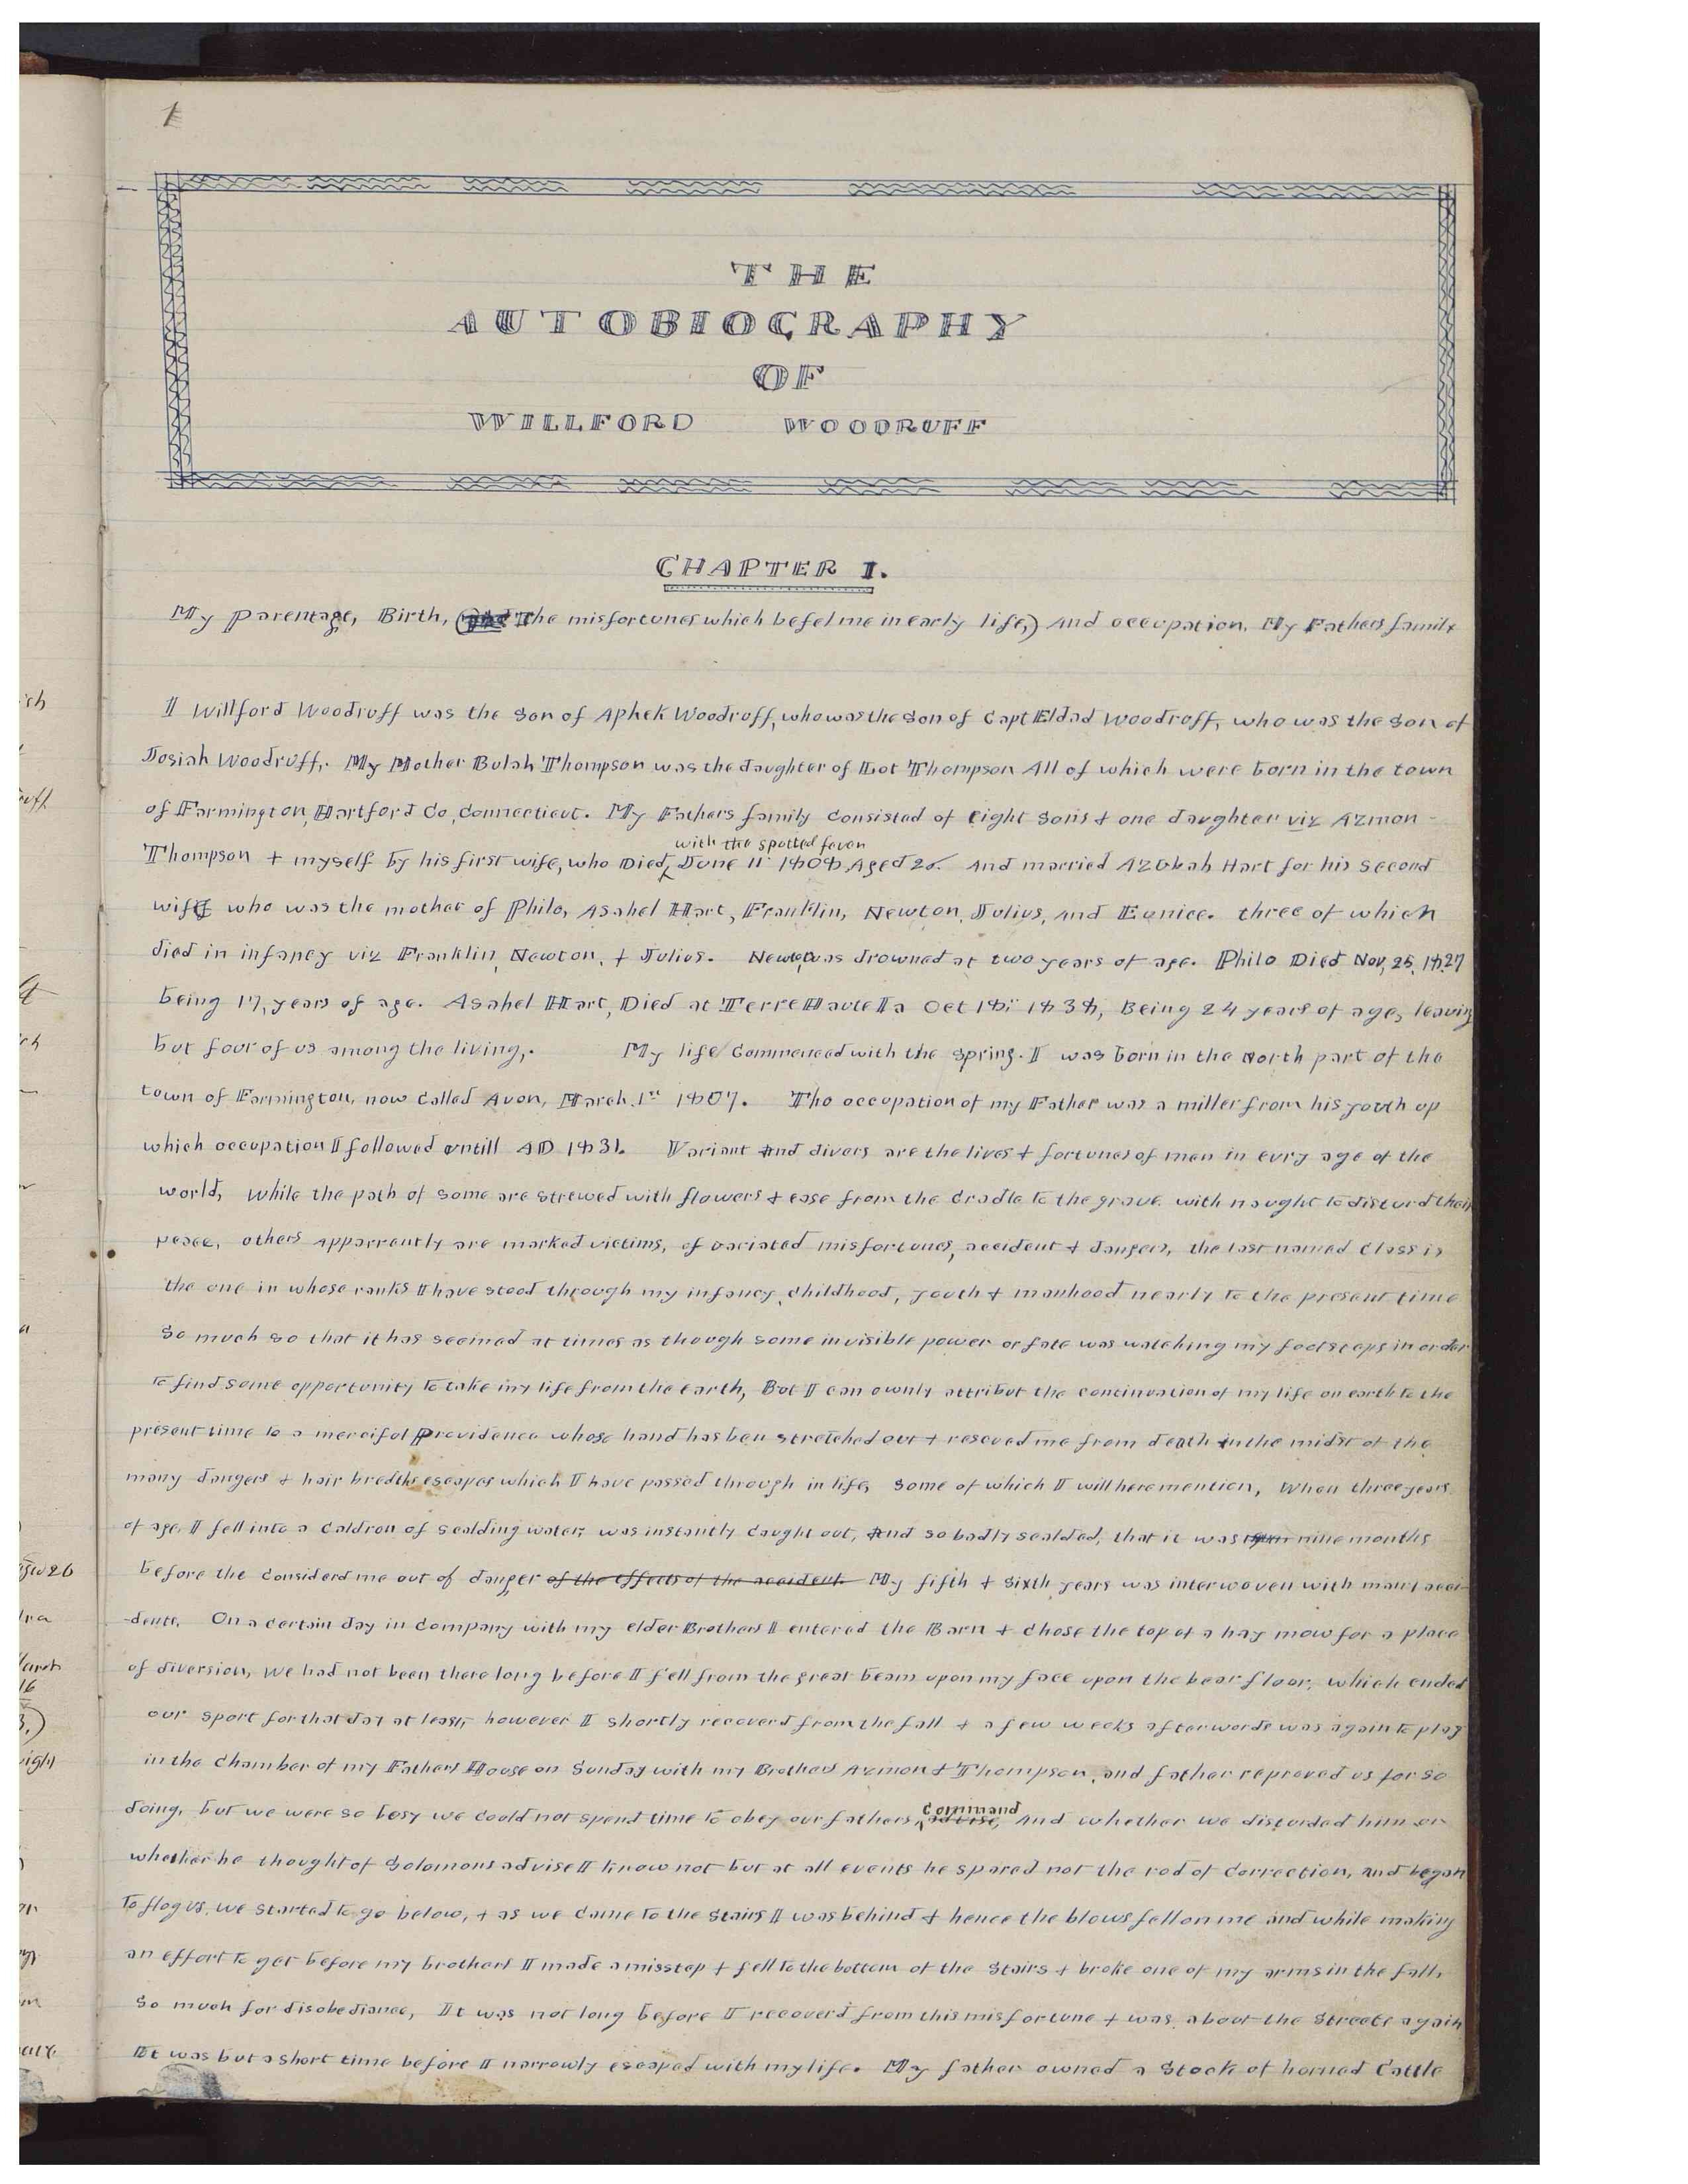 1
THE
AUTOBIOGRAPHY
OF
WILLFORD WOODRUFF
CHAPTER I.
My Parentage, Birth, (The misfortunes which befel me in early life,) And occupation. My Fathers family
I Willford Woodruff was the Son of Aphek Woodruff, who was the Son of Capt Eldad Woodruff, who was the Son of
Josiah Woodruff,. My Mother Bulah Thompson was the daughter of Lot Thompson All of which were born in the town
of Farmington, Hartford Co, Connecticut. My Fathers family Consisted of Eight Sons & one daughter viz Azmon
with the spotted fever
Thompson & myself by his first wife, who Died, June 11th 1808, Aged 26. And married Azubah Hart for his second
wife who was the mother of Philo, Asahel Hart, Franklin, Newton, Julius, And Eunice. three of which
died in infancy viz Franklin, Newton, & Julius. Newton was drowned at two years of age. Philo Died Nov, 25, 1827
being 17, years of age. Asahel Hart, Died at Terre Haute Ia Oct 18th 1838, Being 24 years of age, leaving
but four of us among the living,. My life Commenced with the Spring. I was born in the North part of the
town of Farmington, now Called Avon, March 1st 1807. The occupation of my Father was a miller from his youth up
which occupation I followed untill AD 1831. Variant And divers are the lives & fortunes of men in evry age of the
world, While the path of some are strewed with flowers & ease from the Cradle to the grave with naught to disturd their
peace, others Apparrently are marked victims, of variated misfortunes, accident & dangers, the last named Class is
the one in whose ranks I have stood through my infancy, Childhood, youth & manhood nearly to the present time
So much so that it has seemed at times as though some invisible power or fate was watching my footsteps in order
to find some opportunity to take my life from the earth, But I can ownly attribut the continuation of my life on earth to the
present time to a merciful Providence whose hand has ben stretched out & rescued me from death in the midst of the
many dangers & hair bredths escapes which I have passed through in life, Some of which I will here mention, When three years
of age, I fell into a Caldron of scalding water; was instantly Caught out, And so badly scalded, that it was nine months
before the Considerd me out of danger of the effects of the accident My fifth & Sixth years was interwoven with many acci-
-dents. On a Certain day in Company with my elder Brothers I entered the Barn & Chose the top of a hay mow for a place
of diversion, We had not been there long before I fell from the great beam upon my face upon the bear floor, which ended
our sport for that day at least, however I shortly recoverd from the fall & a few weeks afterwords was again to play
in the Chamber of my Fathers House on Sunday with my Brothers Azmon & Thompson, and father reproved us for so
command
doing, but we were so busy we could not spend time to obey our fathers, advise, And whether we disturded him or
whether he thought of Solomons advise I know not but at all events he spared not the rod of Correction, And began
to flog us. we started to go below, & as we Came to the Stairs I was behind & hence the blows fell on me and while making
an effort to get before my brothers I made a misstep & fell to the bottom of the Stairs & broke one of my arms in the fall,
So much for disobediance, It was not long before I recoverd from this misfortune & was about the Streets again
It was but a short time before I narrowly escaped with my life. My father owned a Stock of horned Cattle